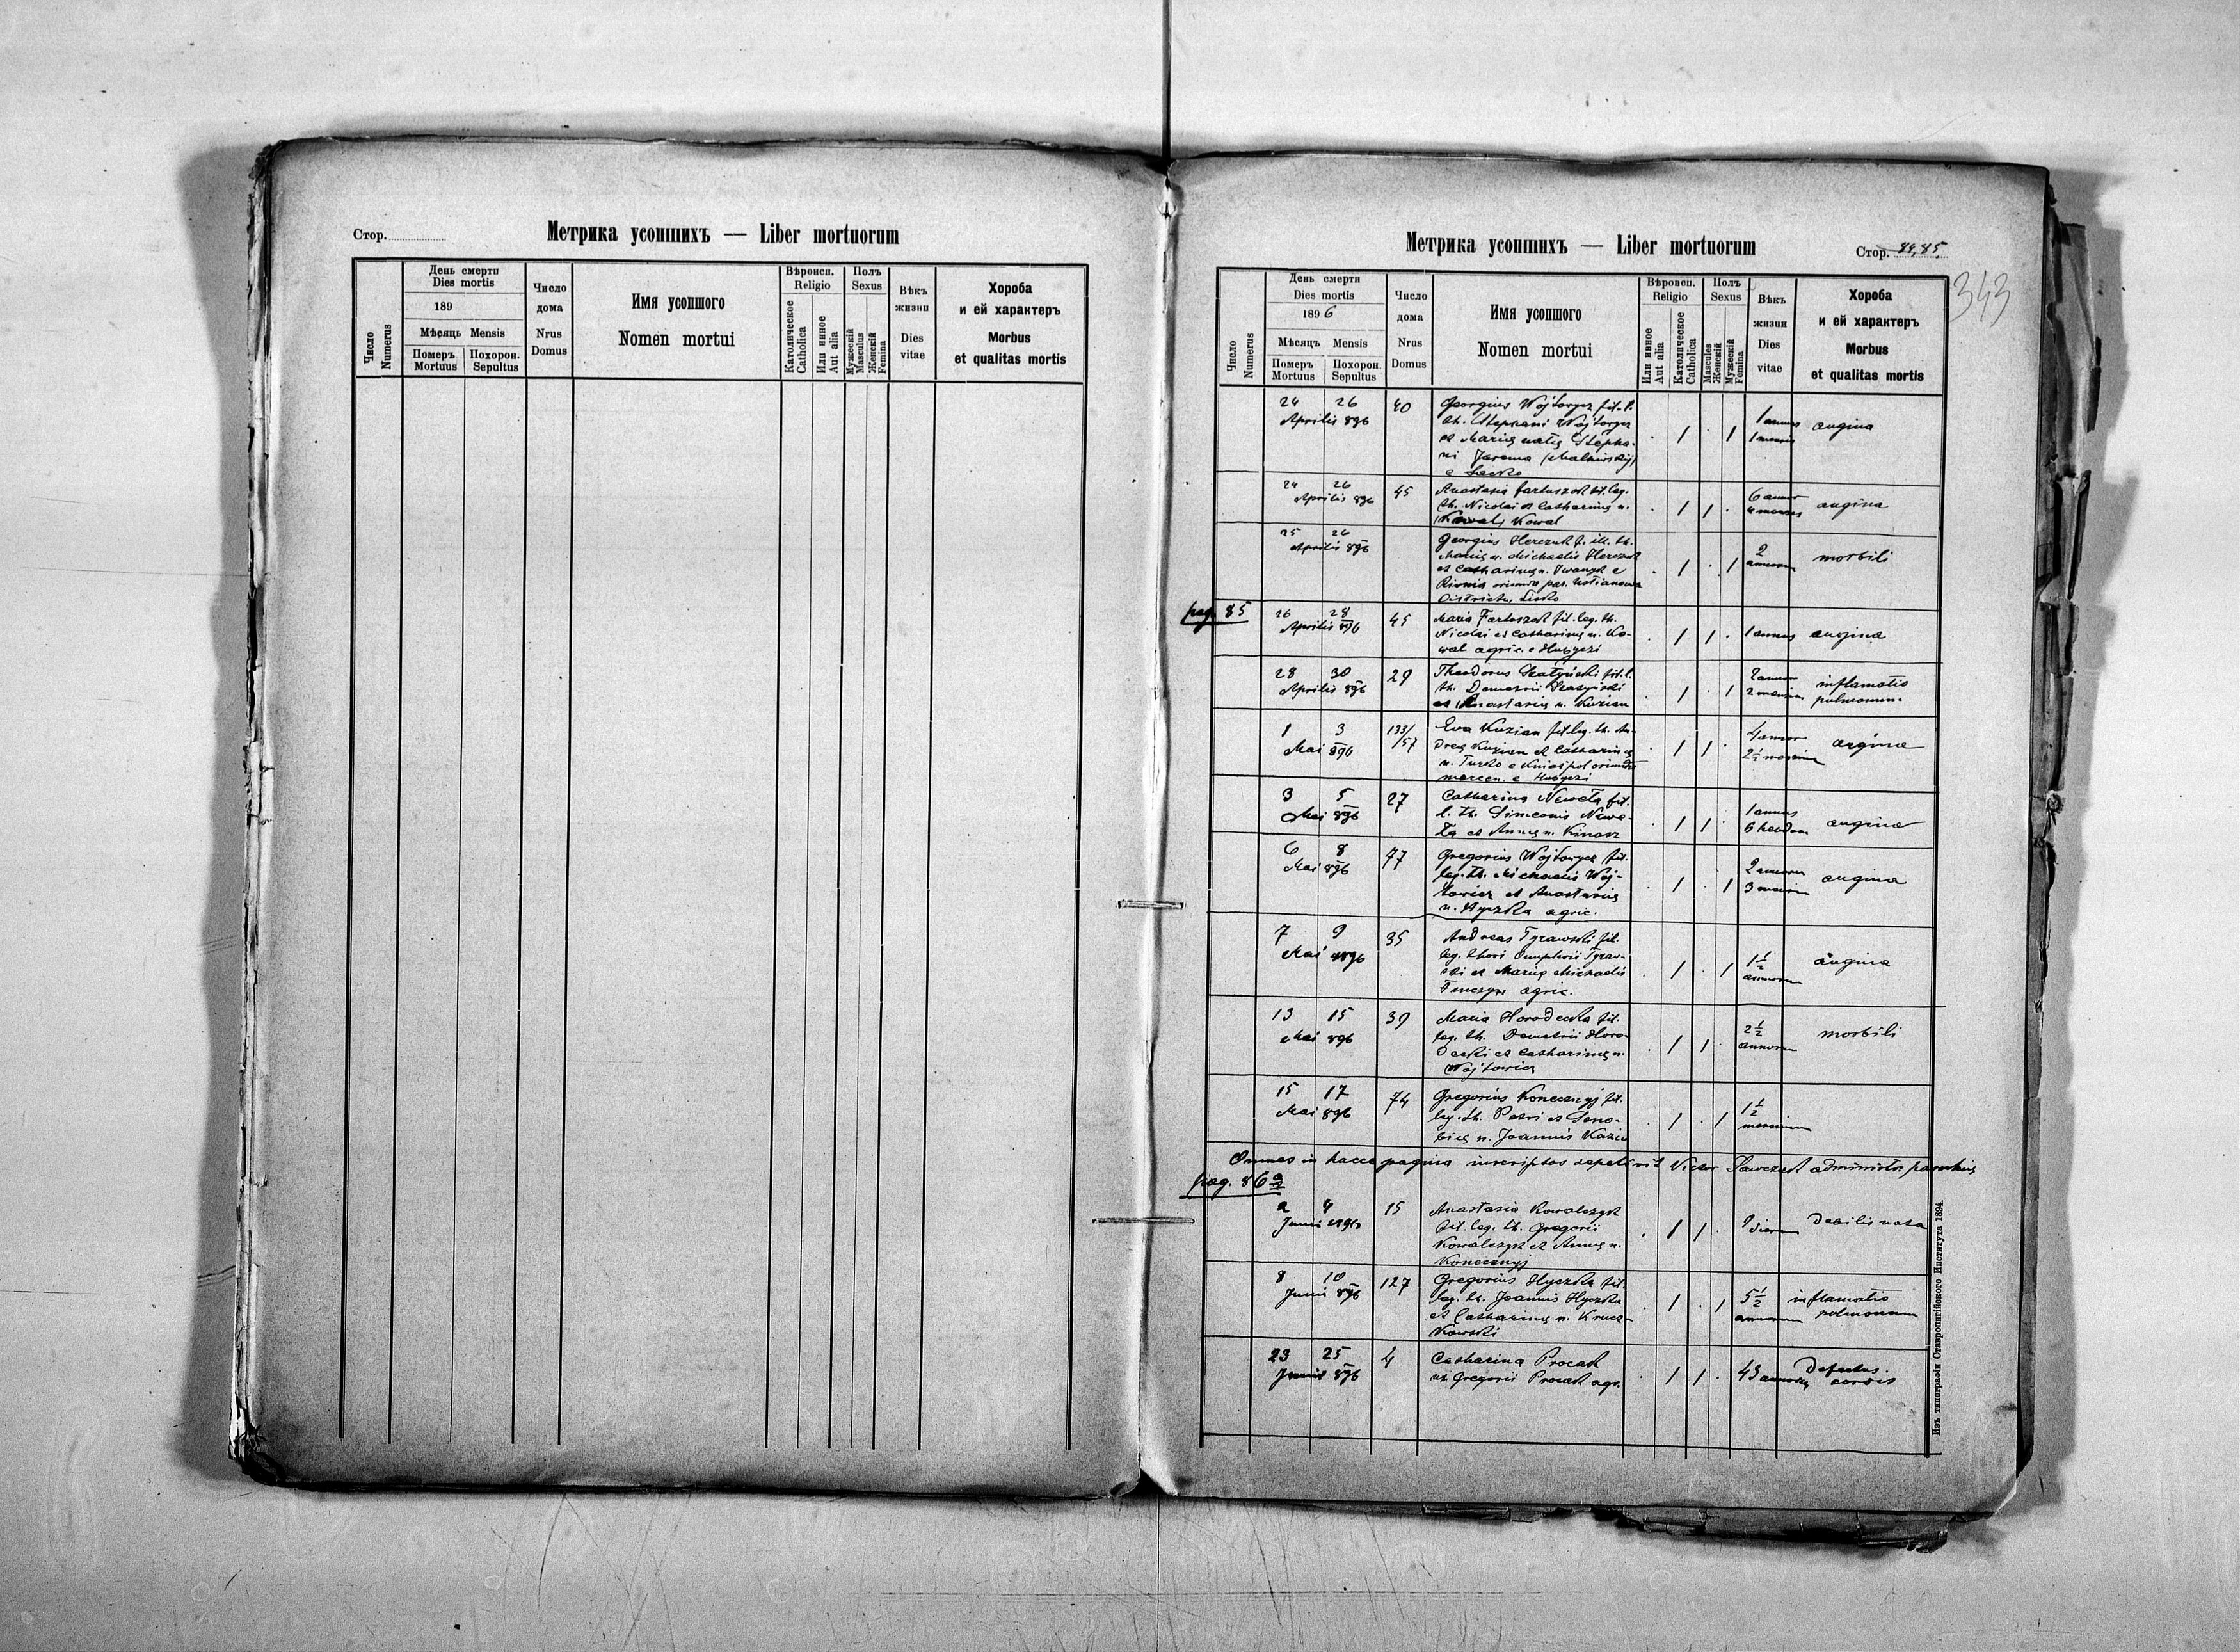 Стор.
Метрика усопшихъ — Liber mortuorum
Число
Numerus
День смерти
Dies mortis
189
Мѣсяць Mensis
Померъ
Mortuus
Похорон.
Sepultus
Число
дома
Nrus
Domus
Имя усопшого
Nomen mortui
Вѣроисп.
Religio
Католическое
Catholica
Или инное
Aut alia
Полъ
Sexus
Мужескій
Masculus
Женскій
Femina
Вѣкъ
жизни
Dies
vitae
Хороба
и ей характеръ
Morbus
et qualitas mortis
Метрика усопшихъ — Liber mortuorum
Стор. 84,85,
343
Число
Numerus
День смерти
Dies mortis
1896
Мѣсяцъ Mensis
Померъ
Mortuus
Похорон.
Sepultus
Число
дома
Nrus
Domus
Имя усопшого
Nomen mortui
Вѣроисп.
Religio
Или инное
Aut alia
Католическое
Catholica
Полъ
Sexus
Mascules
Женскій
Мужескій
Femina
Вѣкъ
жизни
Dies
vitae
Хороба
и ей характеръ
Morbus
et qualitas mortis
24 26
Aprilis 896
40
Georgius Wojtowycz fil. l.
th. Stephani Wojtowycz
et Marię natę Stepha-
ni Jarema
e Lesko
1 annus
1 mensis
angina
24 26
Aprilis 896
45
Anastasia Fartuszok fil. leg.
th. Nicolai et Catharinę n.
Kowal
6 annor
4 menses
angina
25 26
Aprilis 896
Georgius f. ill. th.
Marię n. Michaelis
et Catharinę n. Iwanyk e
oriunda par.
Districtu Lisko
2
annorum
morbili
pag. 85
26 28
Aprilis 896
45
Maria Fartuszok fil. leg. th.
Nicolai et Catharinę n. Ko-
wal agric. e
1 annus
angina
28 30
Aprilis 896
29
Theodorus fil. l.
th. Demetrii
et Anastasię n. Kuzian
2 annor
2 mensium
inflamatio
pulmonum
1 3
Mai 896
133/
157
Eva Kuzian fil. leg. th. An-
dreę Kuzian et Catharinę
n. Turko e
4 annor
2½ mensium
argina
3 5
Mai 896
27
Catharina Neweła fil.
l. th. Simeonis Newe-
łą et Annę n.
1 annus
6 hebdom
angina
6 8
Mai 896
77
Gregorius Wojtowycz fil.
leg. th. Michaelis Woj-
towicz et Anastasię
n. Hyczka agric.
2 annorum
3 mensium
angina
7 9
Mai 896
35
Andreas Tyrawski fil.
leg. thori Onuphrii Tyraw-
ski et Marię Michaelis
agric.
1½
annorum
angina
13 15
Mai 896
39
Maria Horodecka fil.
leg. th. Demetrii Horo-
decki et Catharinę n.
Wojtowicz
2½
annorum
morbili
15 17
Mai 896
74
Gregorius Konecznyj fil.
leg. th. Petri et Xeno-
bię n. Joannis
1½
mensium
Omnes in hacce pagina inscriptos sepelivit Victor Sawczak administr. parochius
pag. 86
2 4
Junii 896
15
Anastasia Kowalczyk
fil. leg. th. Gregorii
Kowalczyk et Annę n.
Konecznyj
dierum
Debilis nata
8 10
Junii 896
127
Gregorius Hyczka fil.
leg. th. Joannis Hyczka
et Catharinę n. Krucz-
kowski
5½
annorum
inflamatio
pulmonum
23 25
Junii 896
4
Catharina Procak
ux. Gregorii Procak agr.
43 annorum
Defectus
cordis
Изъ типографіи Ставропигійского Института 1894.